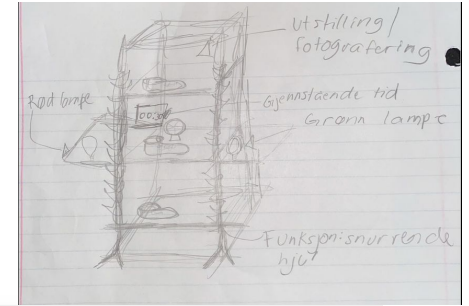 Utstilling/
fotografering
Rød lampe
Gjennstående tid
Grønn lampe
00:30
Funksjon:snurrende
hjul